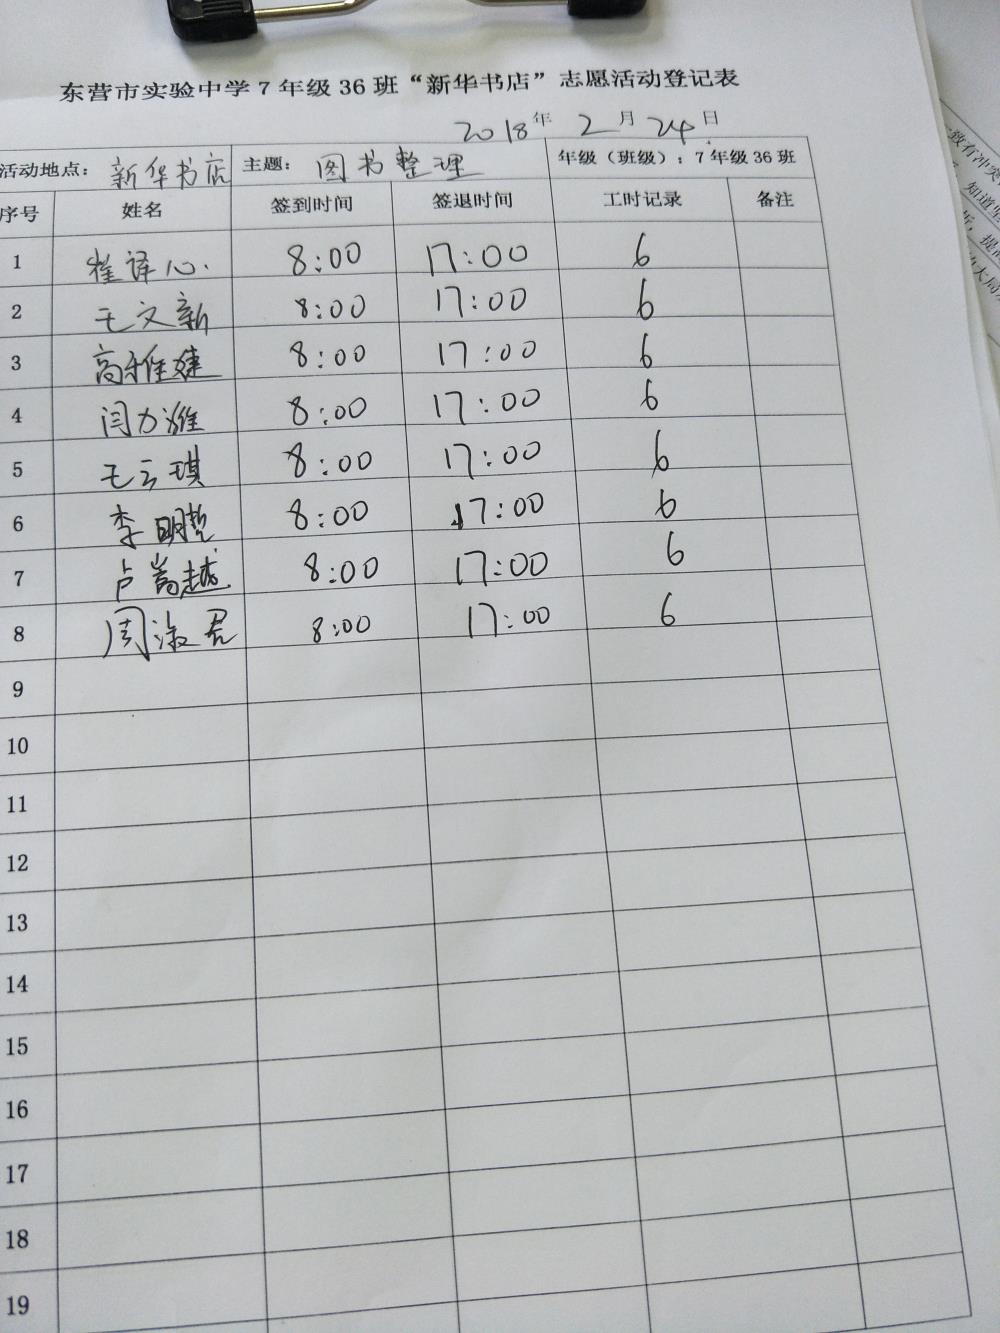 东营市实验中学7年级36班“新华书店”志愿活动登记表
2018年 2月 24日
活动地点: 新华书店 主题: 图书整理 年级（班级）: 7年级36班
序号 姓名 签到时间 签退时间 工时记录 备注
1 崔译心 8:00 17:00 6
2 王文新 8:00 17:00 6
3 高雅婕 8:00 17:00 6
4 闫力潍 8:00 17:00 6
5 王云琪 8:00 17:00 6
6 李明哲 8:00 17:00 6
7 卢嵩越 8:00 17:00 6
8 周淑君 8:00 17:00 6
9
10
11
12
13
14
15
16
17
18
19